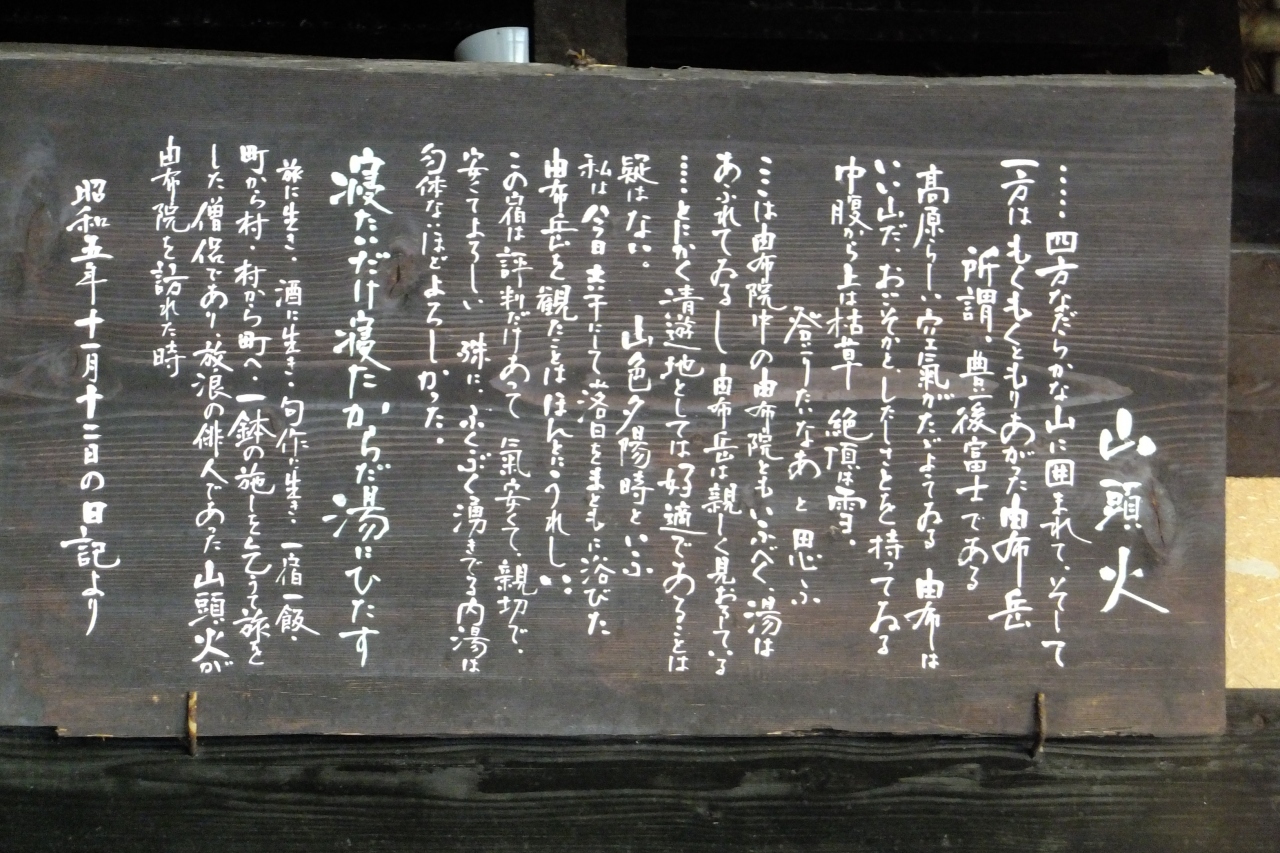 山頭火
……四方なだらかな山に囲まれて、そして
一方はもくもくともりあがった由布岳
所謂、豊後富士である
高原らしい空氣がたゞよてゐる 由布は
いい山だ、おごそかと、したしさとを持ってゐる
中腹から上は枯草 絶頂は雪、
登りたいなあと思ふ
こゝは由布院中の由布院ともいふべく、湯は
あふれてゐるし 由布岳は親しく見おろしている
……とにかく清遊地としては好適であることは
疑はない。 山色夕陽時といふ
私は今日 幸にして落日をまともに浴びた
由布岳を観たことはほんとにうれしい。
この宿は評判だけあって 氣安くて、親切で、
安くてよろしい 殊に、ぶくぶく湧きでる内湯は
勿体ないほどよろしかった。
寝たいだけ寝たからだ湯にひたす
旅に生き、酒に生き、句作に生き、一宿一飯、
町から村・村から町へ・一鉢の施しを乞うて旅を
した僧侶であり、放浪の俳人であった山頭火が
由布院を訪れた時
昭和五年十一月十二日の日記より